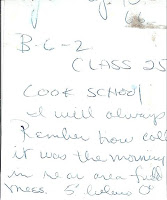 B-C-2
CLASS 25
COOK SCHOOL
I will always
Rember how cold
it was the morning
in rear area field
mess. 5° below 0